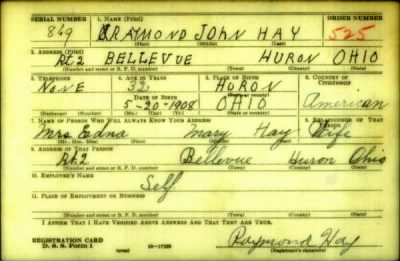 SERIAL NUMBER 1. NAME (Print) ORDER NUMBER
869 RAYMOND JOHN HAY 525
(First) (Middle) (Last)
2. ADDRESS (Print)
Rt 2 BELLEVUE HURON OHIO
(Number and street or R. F. D. number) (Town) (County) (State)
3. TELEPHONE 4. AGE IN YEARS 5. PLACE OF BIRTH 6. COUNTRY OF CITIZENSHIP
NONE 32 HURON
DATE OF BIRTH
5-20-1908 OHIO American
(Exchange) (Number) (Mo.) (Day) (Yr.) (State or country)
7. NAME OF PERSON WHO WILL ALWAYS KNOW YOUR ADDRESS 8. RELATIONSHIP OF THAT PERSON
Mrs Edna Mary Hay Wife
(Mr., Mrs., Miss) (First) (Middle) (Last)
9. ADDRESS OF THAT PERSON
Rt. 2 Bellevue Huron Ohio
(Number and street or R. F. D. number) (Town) (County) (State)
10. EMPLOYER'S NAME
Self
11. PLACE OF EMPLOYMENT OR BUSINESS
(Number and street or R. F. D. number) (Town) (County) (State)
I AFFIRM THAT I HAVE VERIFIED ABOVE ANSWERS AND THAT THEY ARE TRUE.
REGISTRATION CARD
D. S. S. Form 1 (over) 16-17105 Raymond Hay
(Registrant's signature)